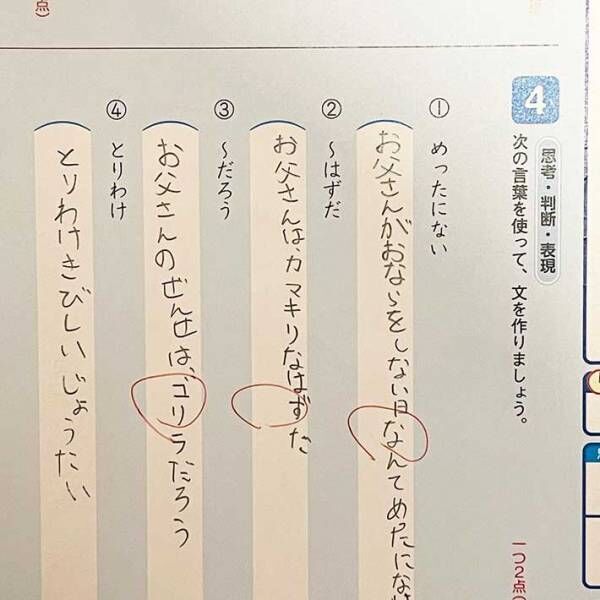 4
思考・判断・表現
次の言葉を使って、文を作りましょう。
一つ2点
① めったにない
お父さんがおならをしない日なんてめたになは
② ～はずだ
お父さんは、カマキリなはずだ
③ ～だろう
お父さんのぜんせは、ゴリラだろう
④ とりわけ
とりわけきびしいじょうたい
点)